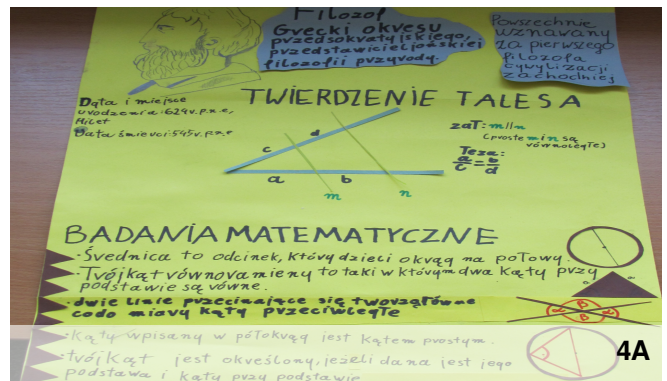 Filozof
Grecki okresu
przedsokratyjskiego,
przedstawiciel jońskiej
filozofii przyrody.
Powszechnie
uznawany
za pierwszego
filozofa
cywilizacji
zachodniej
Data i miejsce
urodzenia: 624r.p.n.e,
Milet
Data śmierci: 545r.p.n.e
TWIERDZENIE TALESA
zał: m||n
(proste m i n są
równoległe)
Teza:
a/c = b/d
c d
a b
m n
BADANIA MATEMATYCZNE
·Średnica to odcinek, który dzieli okrąg na połowy.
·Trójkąt równoramienny to taki w którym dwa kąty przy
podstawie są równe.
·dwie linie przecinające się tworzą równe
co do miary kąty przeciwległe
α β α β
·Kąty wpisany w półokrąg jest kątem prostym.
·trójkąt jest określony, jeżeli dana jest jego
podstawa i kąty przy podstawie
4A